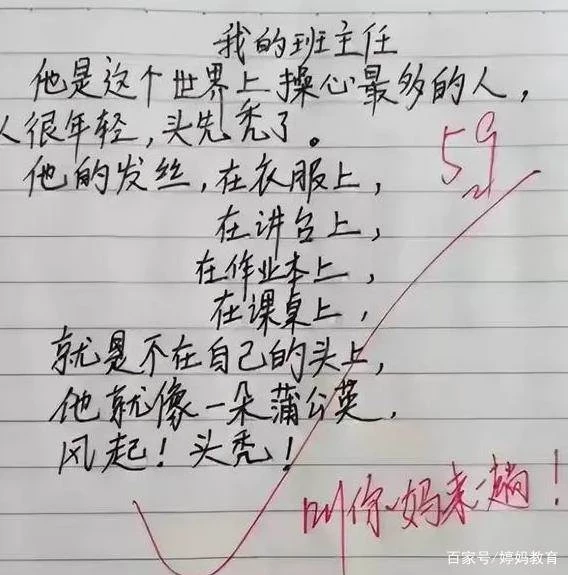 我的班主任
他是这个世界上操心最多的人，
人很年轻，头先秃了。
59
他的发丝，在衣服上，
在讲台上，
在作业本上，
在课桌上，
就是不在自己的头上，
他就像一朵蒲公英，
风起！头秃！
叫你妈来一趟！
百家号/婷妈教育